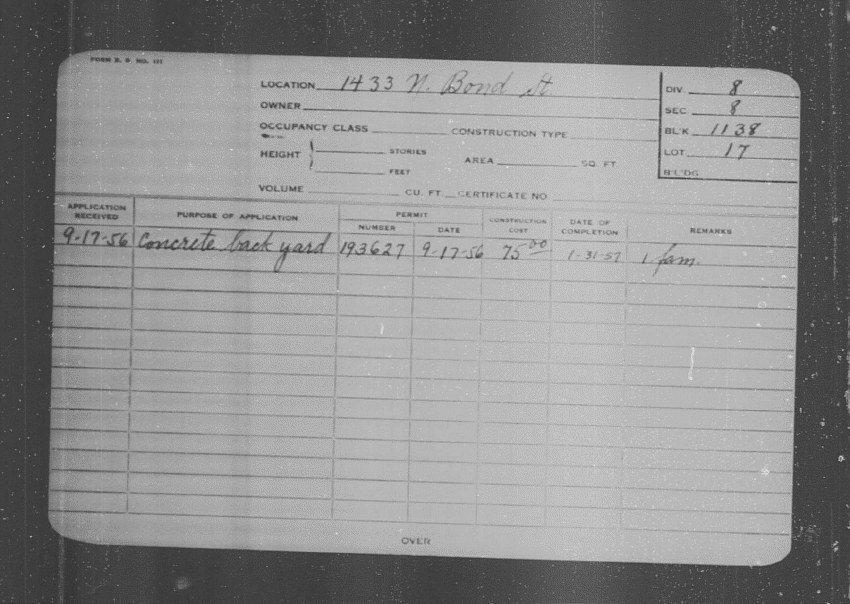 FORM B. D. NO. 121
LOCATION 1433 N. Bond St
DIV. 8
OWNER
SEC. 8
OCCUPANCY CLASS CONSTRUCTION TYPE
BL'K 1138
HEIGHT STORIES AREA SQ FT
LOT 17
FEET
B'L'DG.
VOLUME CU. FT. CERTIFICATE NO.
APPLICATION RECEIVED PURPOSE OF APPLICATION PERMIT NUMBER DATE CONSTRUCTION COST DATE OF COMPLETION REMARKS
9-17-56 Concrete back yard 193627 9-17-56 75 00 1-31-57 1 fam.
OVER